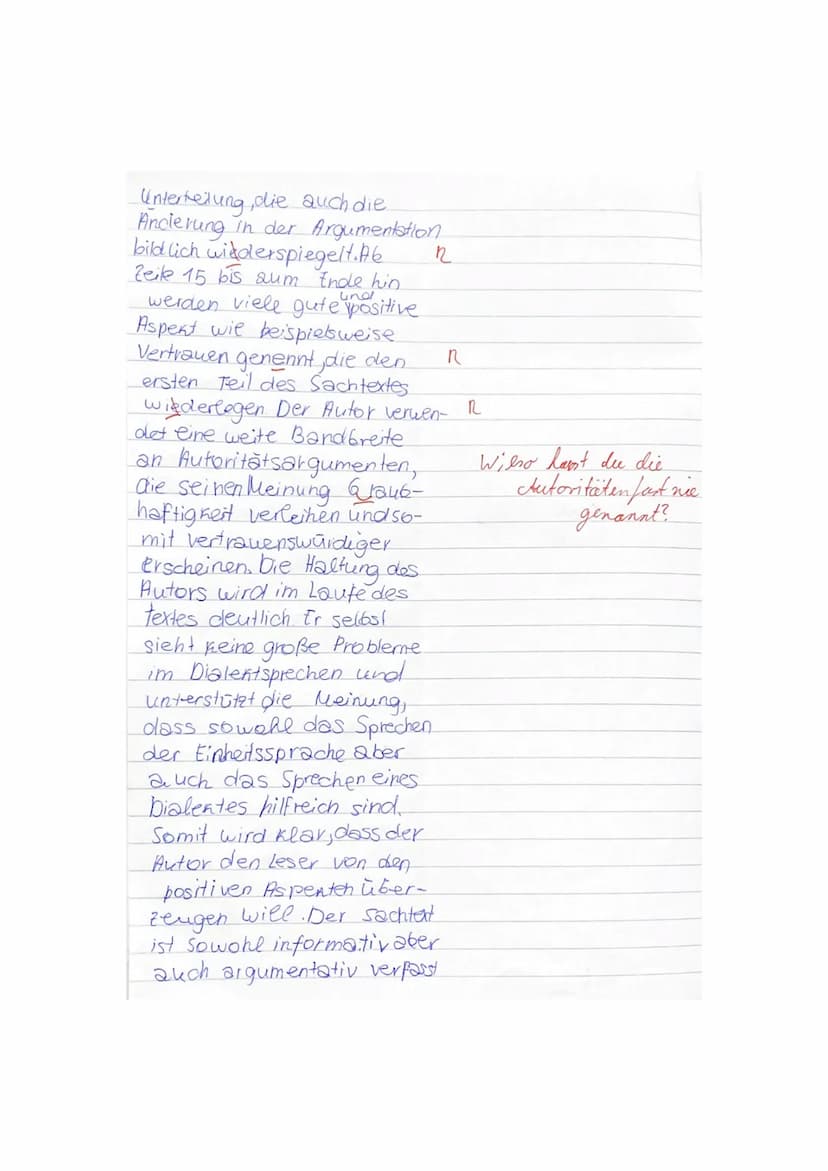 Unterteilung, die auch die
Änderung in der Argumentation
bildlich wiederspiegelt. Ab R
Zeile 15 bis zum Ende hin
werden viele gute und positive
Aspekt wie beispielsweise
Vertrauen genennt, die den R
ersten Teil des Sachtextes
wiederlegen Der Autor verwen- R
det eine weite Bandbreite
an Autoritätsargumenten,
die seinen Meinung Graub-
haftigkeit verleihen und so-
mit vertrauenswürdiger
erscheinen. Die Haltung des
Autors wird im Laufe des
Textes deutlich. Er selbst
sieht keine große Probleme
im Dialektsprechen und
unterstützt die Meinung,
dass sowohl das Sprechen
der Einheitssprache aber
auch das Sprechen eines
Dialektes hilfreich sind.
Somit wird klar, dass der
Autor den Leser von den
positiven Aspekten über-
zeugen will. Der Sachtext
ist sowohl informativ aber
auch argumentativ verfasst
Wieso hast du die
Autoritäten fast nie
genannt?